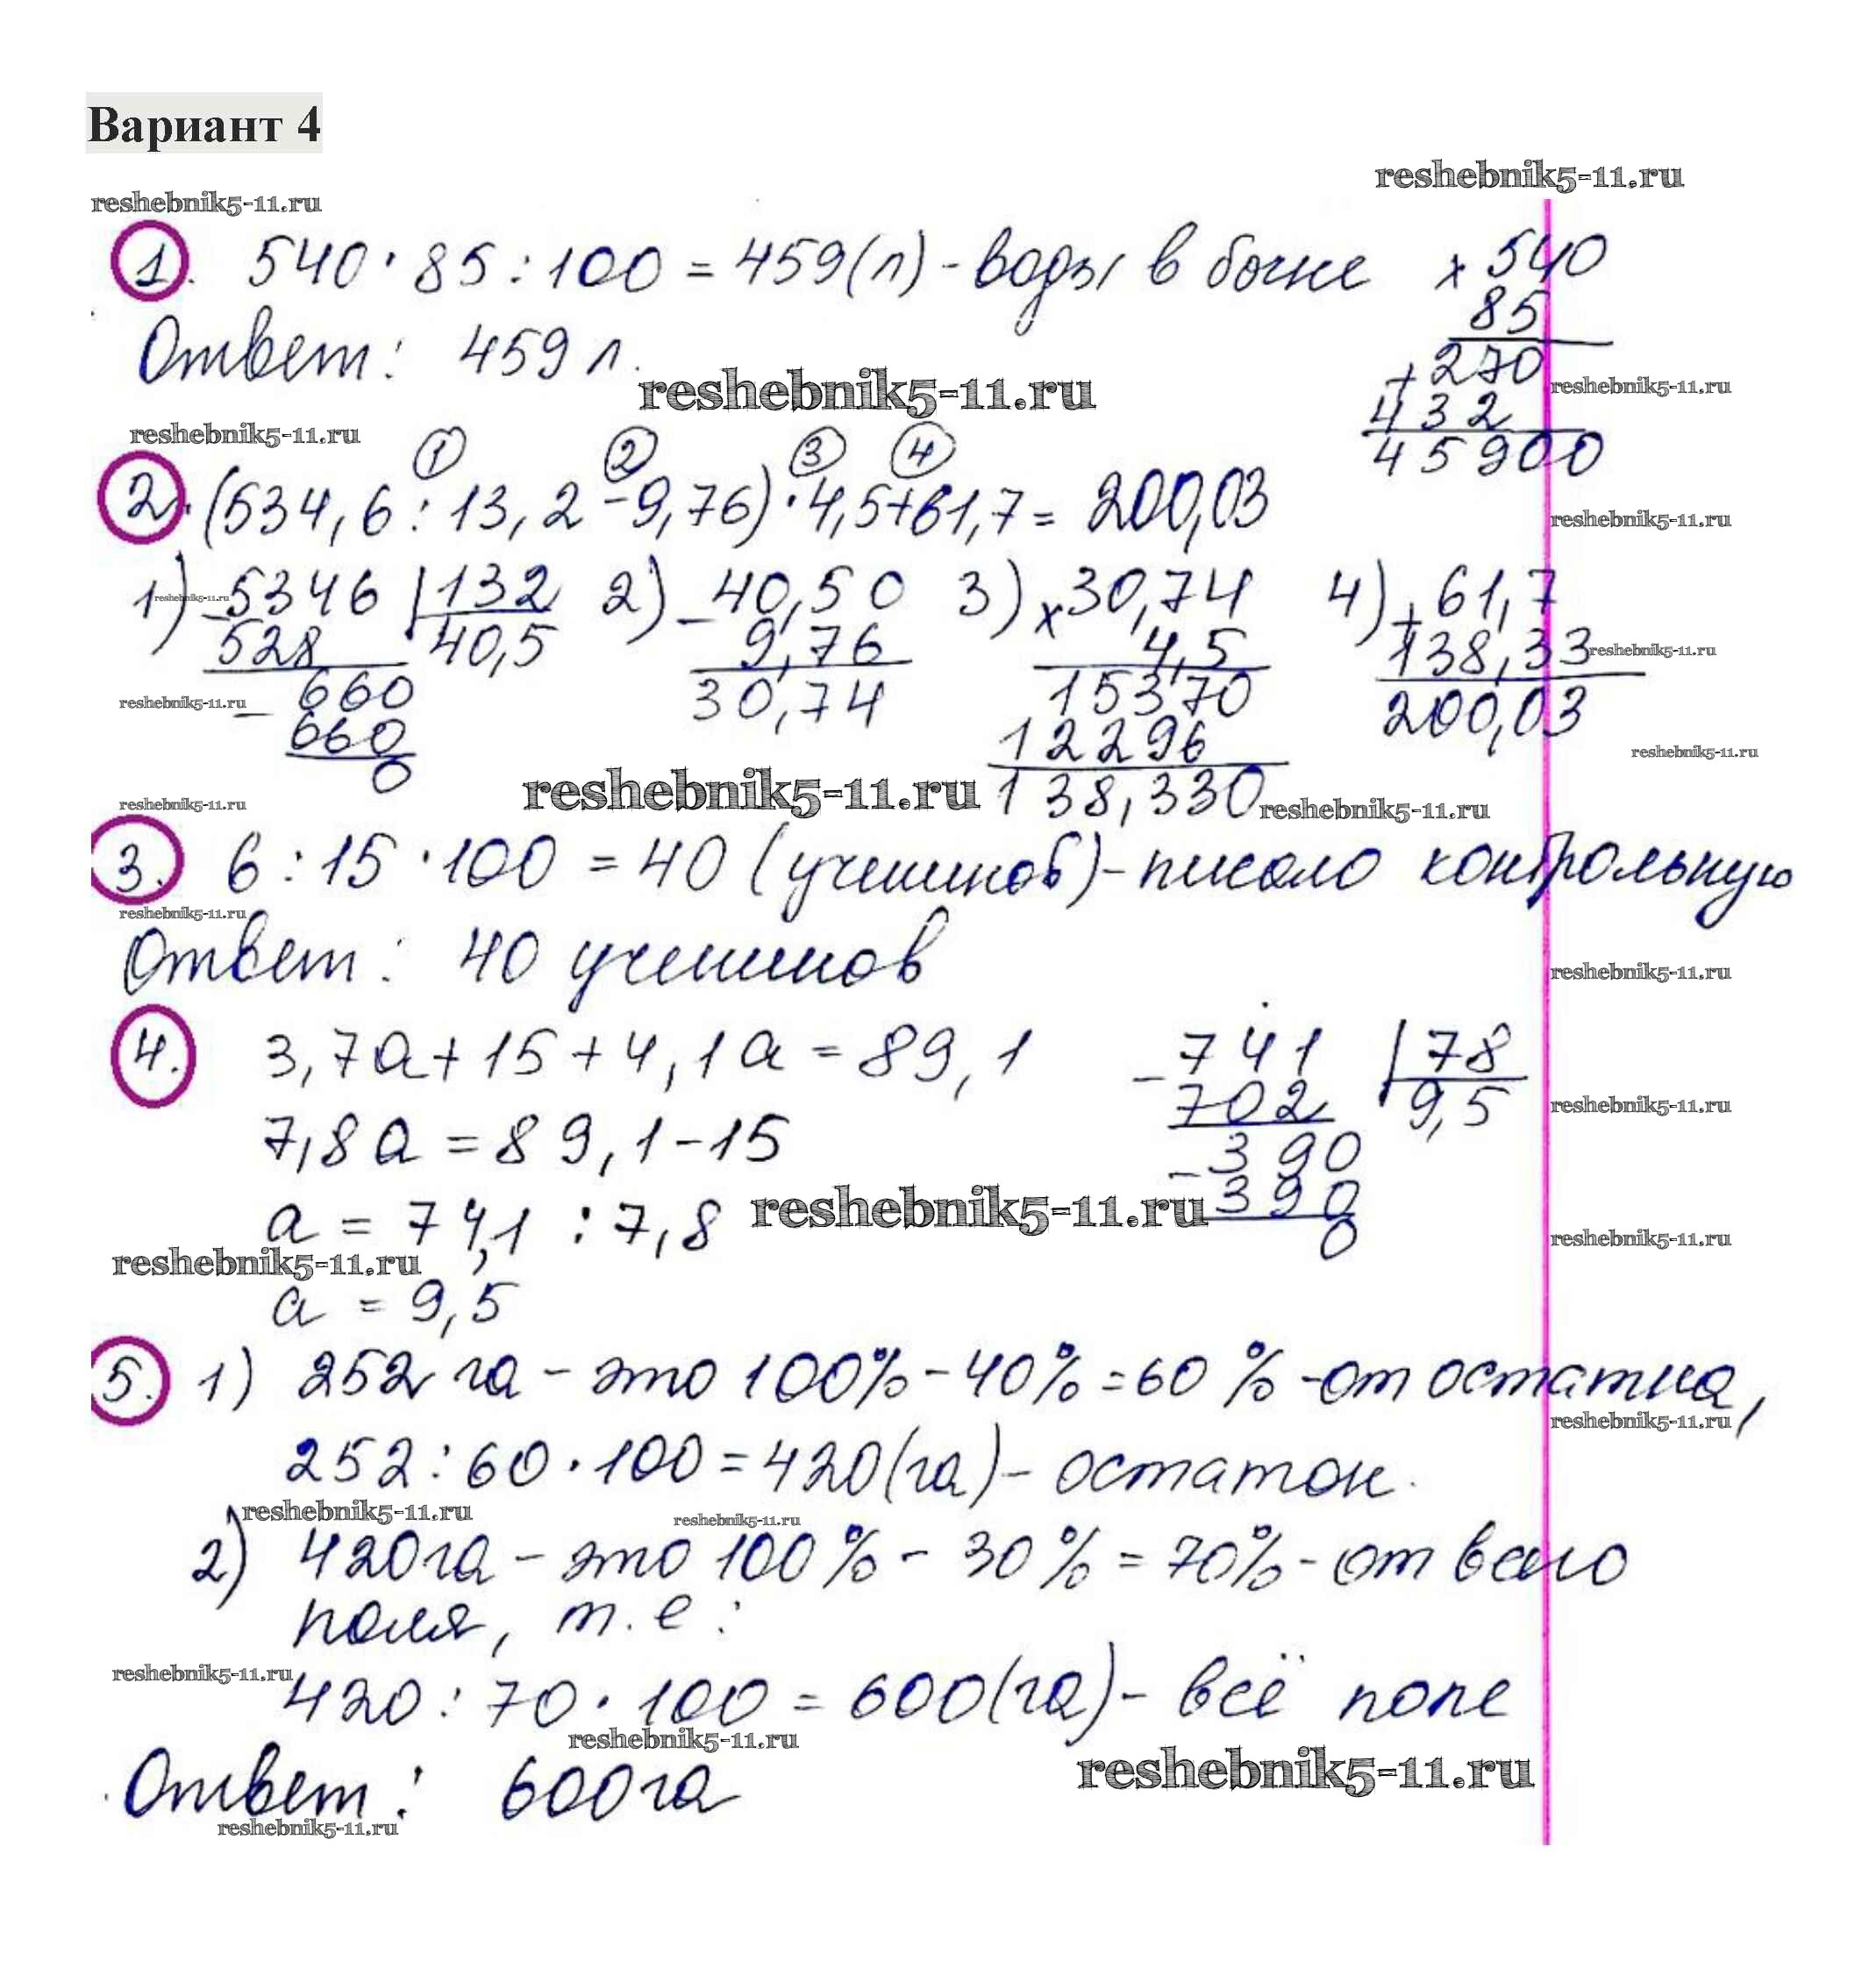 Вариант 4
reshebnik5-11.ru
reshebnik5-11.ru
1. 540 · 85 : 100 = 459 (л) - воды в бочке
× 540
85
+ 270
432
45900
Ответ: 459 л.
reshebnik5-11.ru
reshebnik5-11.ru
reshebnik5-11.ru
1 2 3 4
2. (534,6 : 13,2 - 9,76) · 4,5 + 61,7 = 200,03
reshebnik5-11.ru
1) - 5346 | 132
528 40,5
- 660
660
0
2) - 40,50
9,76
30,74
3) × 30,74
4,5
15370
12296
138,330
4) + 61,7
138,33
200,03
reshebnik5-11.ru
reshebnik5-11.ru
reshebnik5-11.ru
reshebnik5-11.ru
reshebnik5-11.ru
reshebnik5-11.ru
reshebnik5-11.ru
3. 6 : 15 · 100 = 40 (учеников) - писало контрольную
reshebnik5-11.ru
Ответ: 40 учеников
reshebnik5-11.ru
4. 3,7a + 15 + 4,1a = 89,1
7,8a = 89,1 - 15
a = 74,1 : 7,8
a = 9,5
- 741 | 78
702 9,5
- 390
390
0
reshebnik5-11.ru
reshebnik5-11.ru
reshebnik5-11.ru
reshebnik5-11.ru
5. 1) 252 га - это 100% - 40% = 60% - от остатка,
reshebnik5-11.ru
252 : 60 · 100 = 420 (га) - остаток.
reshebnik5-11.ru
reshebnik5-11.ru
2) 420 га - это 100% - 30% = 70% - от всего
поля, т.е:
reshebnik5-11.ru
420 : 70 · 100 = 600 (га) - всё поле
reshebnik5-11.ru
reshebnik5-11.ru
Ответ: 600 га
reshebnik5-11.ru